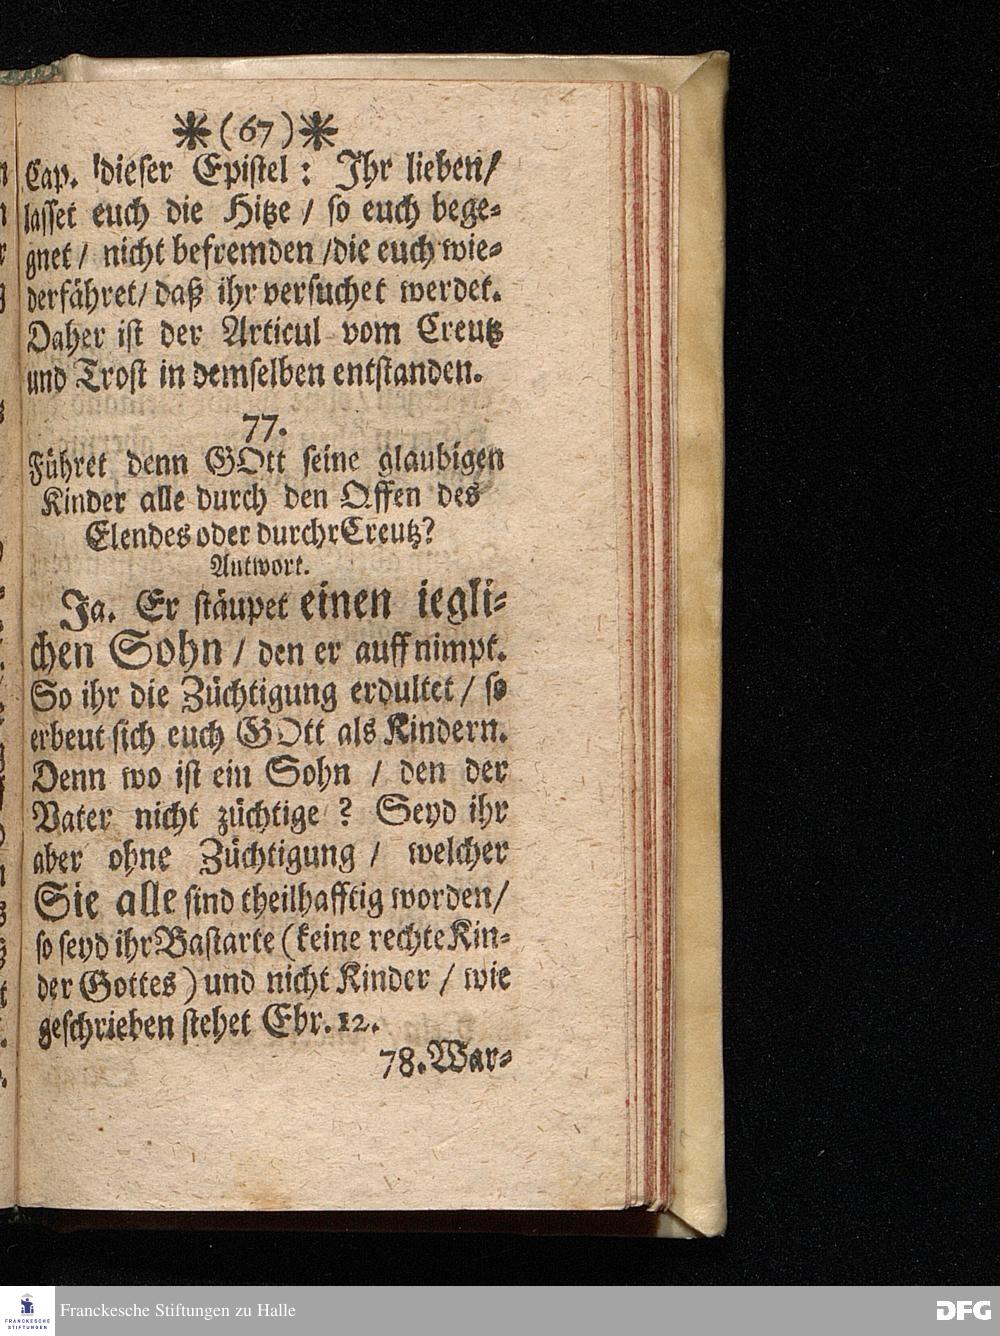 ❋(67)❋
Cap. dieser Epistel: Ihr lieben/
lasset euch die Hitze / so euch bege-
gnet / nicht befremden /die euch wie-
derfähret/ daß ihr versuchet werdet.
Daher ist der Articul vom Creutz
und Trost in demselben entstanden.
77.
Führet denn GOtt seine glaubigen
Kinder alle durch den Offen des
Elendes oder durchr Creutz?
Antwort.
Ja. Er stäupet einen iegli-
chen Sohn / den er auff nimpt.
So ihr die Züchtigung erdultet / so
erbeut sich euch GOtt als Kindern.
Denn wo ist ein Sohn / den der
Vater nicht züchtige ? Seyd ihr
aber ohne Züchtigung / welcher
Sie alle sind theilhafftig worden/
so seyd ihr Bastarte (keine rechte Kin-
der Gottes) und nicht Kinder / wie
geschrieben stehet Ebr. 12.
78. War-
FRANCKESCHE
STIFTUNGEN
Franckesche Stiftungen zu Halle
DFG